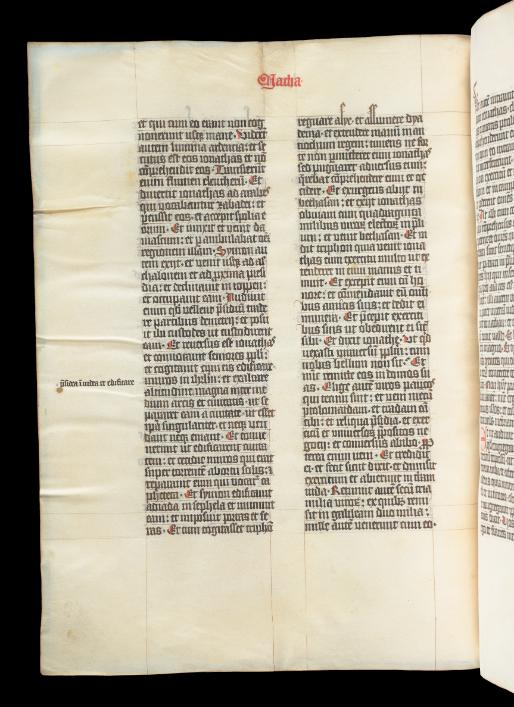 Macha
et qui cum eo erant non cog
noverunt usq; mane. Videbāt
autem lumina ardentia: et se
cutus est eos ionathas et nō
cōprehendit eos. Transierāt
enim flumen eleutherū. Et
divertit ionathas ad arabes
qui vocabantur zabadei: et
percussit eos. et accepit spolia e
orum. Et iunxit et venit da
mascum: et pambulabat oēm
regionem illam. Symon au
tem exiit. et venit usq; ad as
chalonem et ad proxima presi
dia: et declinavit in ioppen:
et occupavit eam. Audivit
enim qd vellent psidiū trade
re partibus demetrii: et posu
it ibi custodes ut custodirent
eam. Et reversus est ionathas
et convocavit seniores ppli:
et cogitavit cum eis edificare
muros in ihrlm: et exaltare
altitudinē magna inter me
dium arcis et civitatis. ut se
pararet eam a civitate. ut esset
ipa singulariter. et neq; ven
dant neq; emant. Et conve
nerunt ut edificarent civita
tem: et cecidit murus qui erat
super torrentē ab ortu solis: et
reparavit eum qui vocatur ca
phetera. Et symon edificavit
adiada in sephela et munivit
eam: et imposuit portas et se
ras. Et cum cogitasset triphō
psidia ī iudea et edificare
regnare asye. et assumere dya
dema. et extendere manū in an
tiochum regem: timens ne for
te non permitteret eum ionathas
sed pugnaret adversus eum:
querebat cōprehendere eum et oc
cidere. Et exurgens abiit in
bethasan: et exiit ionathas
obviam cum quadraginta
milibus viroꝝ electoꝝ in pliū
um: et venit bethasan. Et vi
dit triphon quia venit iona
thas cum exercitu multo ut ex
tenderet in eum manus et ti
muit. Et excepit eum cū ho
nore: et cōmendavit eū omī
bus amicis suis: et dedit ei
munera. Et pcepit exerciti
bus suis ut obedirent ei sicut
sibi. Et dixit ionathe. Ut qd
vexasti universū pplm: cum
nobis bellum non sit. Et
nūc remitte eos in domos su
as. Elige autē viros paucos
qui tecum sint: et veni mecū
ptolomaidam. et tradam eā
tibi: et reliqua psidia. et exer
citū et universos prepositos ne
gocii: et conversus abibo. pp
terea enim veni. Et credidit
ei. et fecit sicut dixit. et dimisit
exercitum et abierunt in terram
iuda. Retinuit autē secū tria
milia viroꝝ: ex quibus remi
sit in galileam duo milia:
mille autē venerunt cum eo.